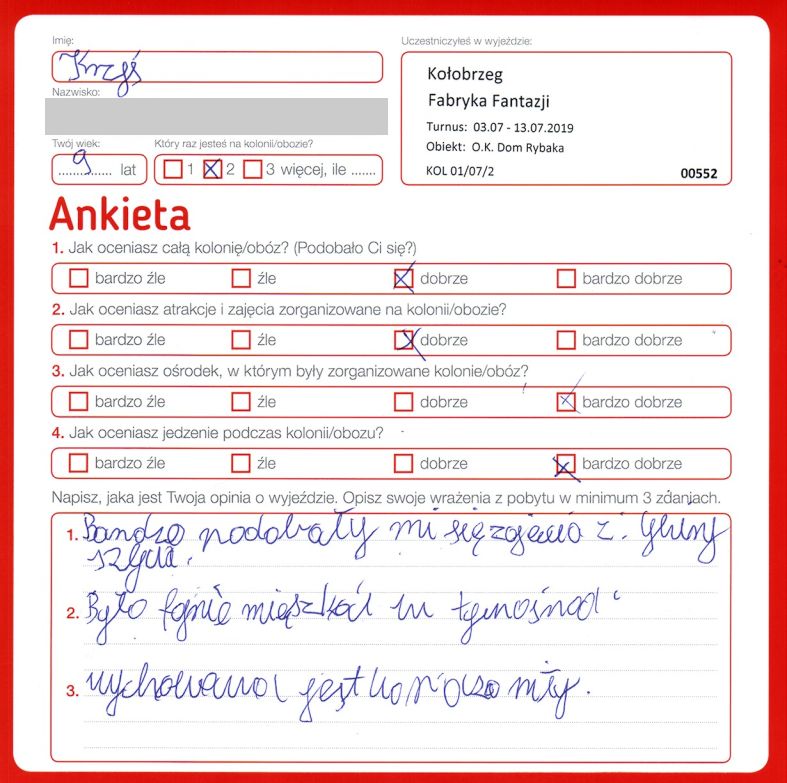 Imię:
Krzyś
Uczestniczyłeś w wyjeździe:
Kołobrzeg
Fabryka Fantazji
Turnus: 03.07 - 13.07.2019
Obiekt: O.K. Dom Rybaka
KOL 01/07/2
00552
Nazwisko:
Twój wiek:
9 lat
Który raz jesteś na kolonii/obozie?
1 2 3 więcej, ile .......
Ankieta
1. Jak oceniasz całą kolonię/obóz? (Podobało Ci się?)
bardzo źle źle dobrze bardzo dobrze
2. Jak oceniasz atrakcje i zajęcia zorganizowane na kolonii/obozie?
bardzo źle źle dobrze bardzo dobrze
3. Jak oceniasz ośrodek, w którym były zorganizowane kolonie/obóz?
bardzo źle źle dobrze bardzo dobrze
4. Jak oceniasz jedzenie podczas kolonii/obozu?
bardzo źle źle dobrze bardzo dobrze
Napisz, jaka jest Twoja opinia o wyjeździe. Opisz swoje wrażenia z pobytu w minimum 3 zdaniach.
1. Bardzo podobały mi się zajęcia z. Gliny
szycia.
2. Było fajnie mieszkać w tym
3. wychowawca jest miły.